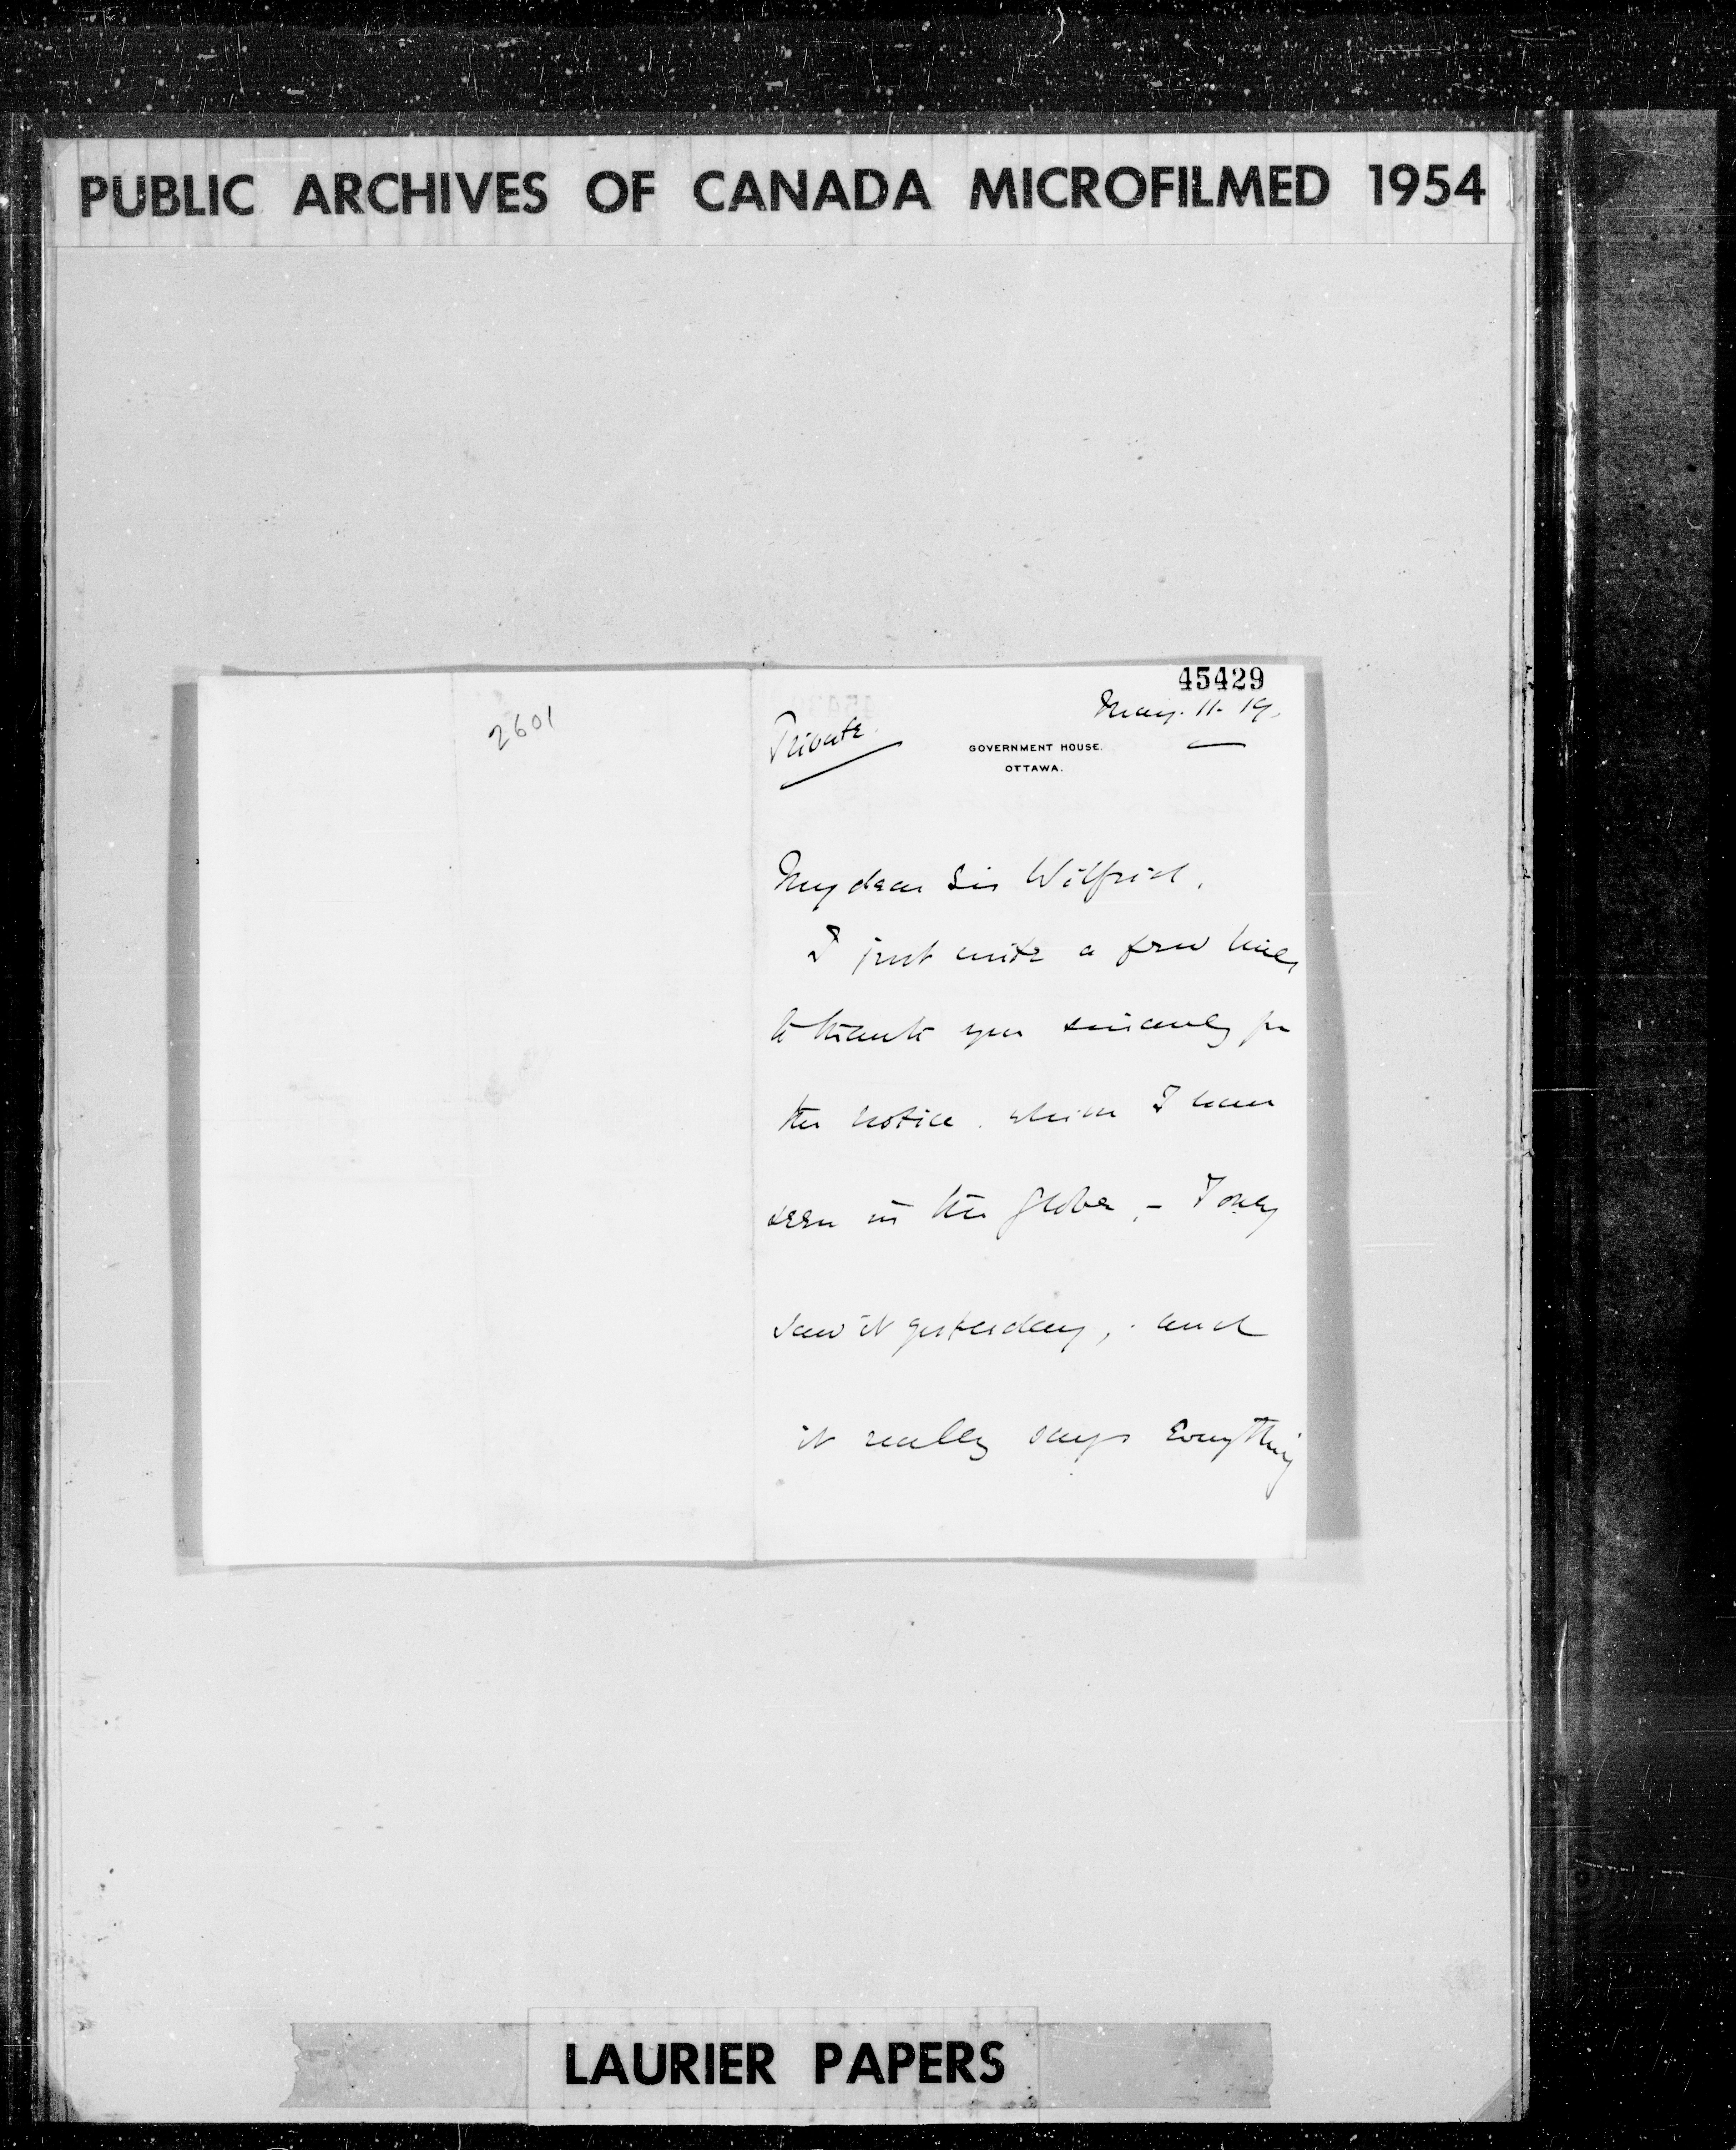 PUBLIC ARCHIVES OF CANADA MICROFILMED 1954
45429
2601
May. 11. 19.
Private.
GOVERNMENT HOUSE.
OTTAWA.
My dear Sir Wilfrid,
I just write a few lines
to thank you sincerely for
the notice which I have
seen in the Globe, - I only
saw it yesterday, and
it really says Everything
LAURIER PAPERS